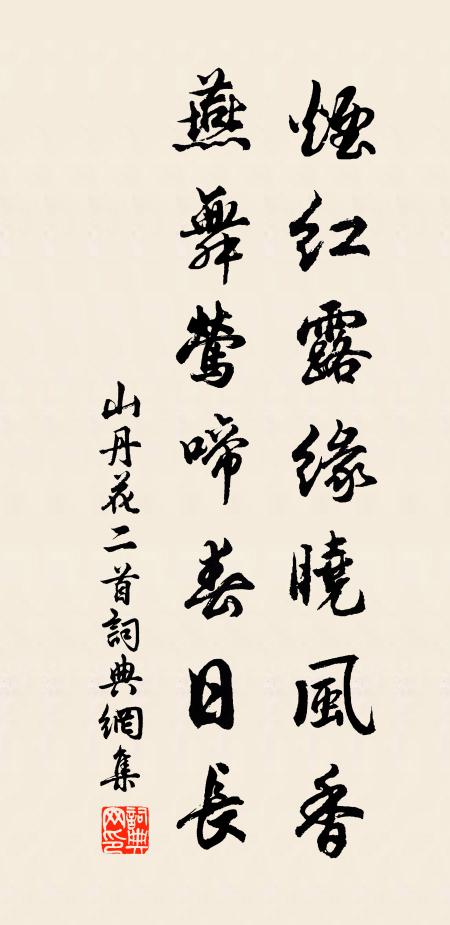 煙紅露緣曉風香
燕舞鶯啼春日長
山丹花二首詞典網集
詞典
网印